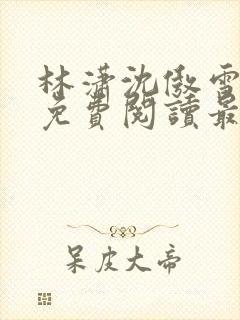 林潇沈傲雪
免費閱讀最
呆皮大帝